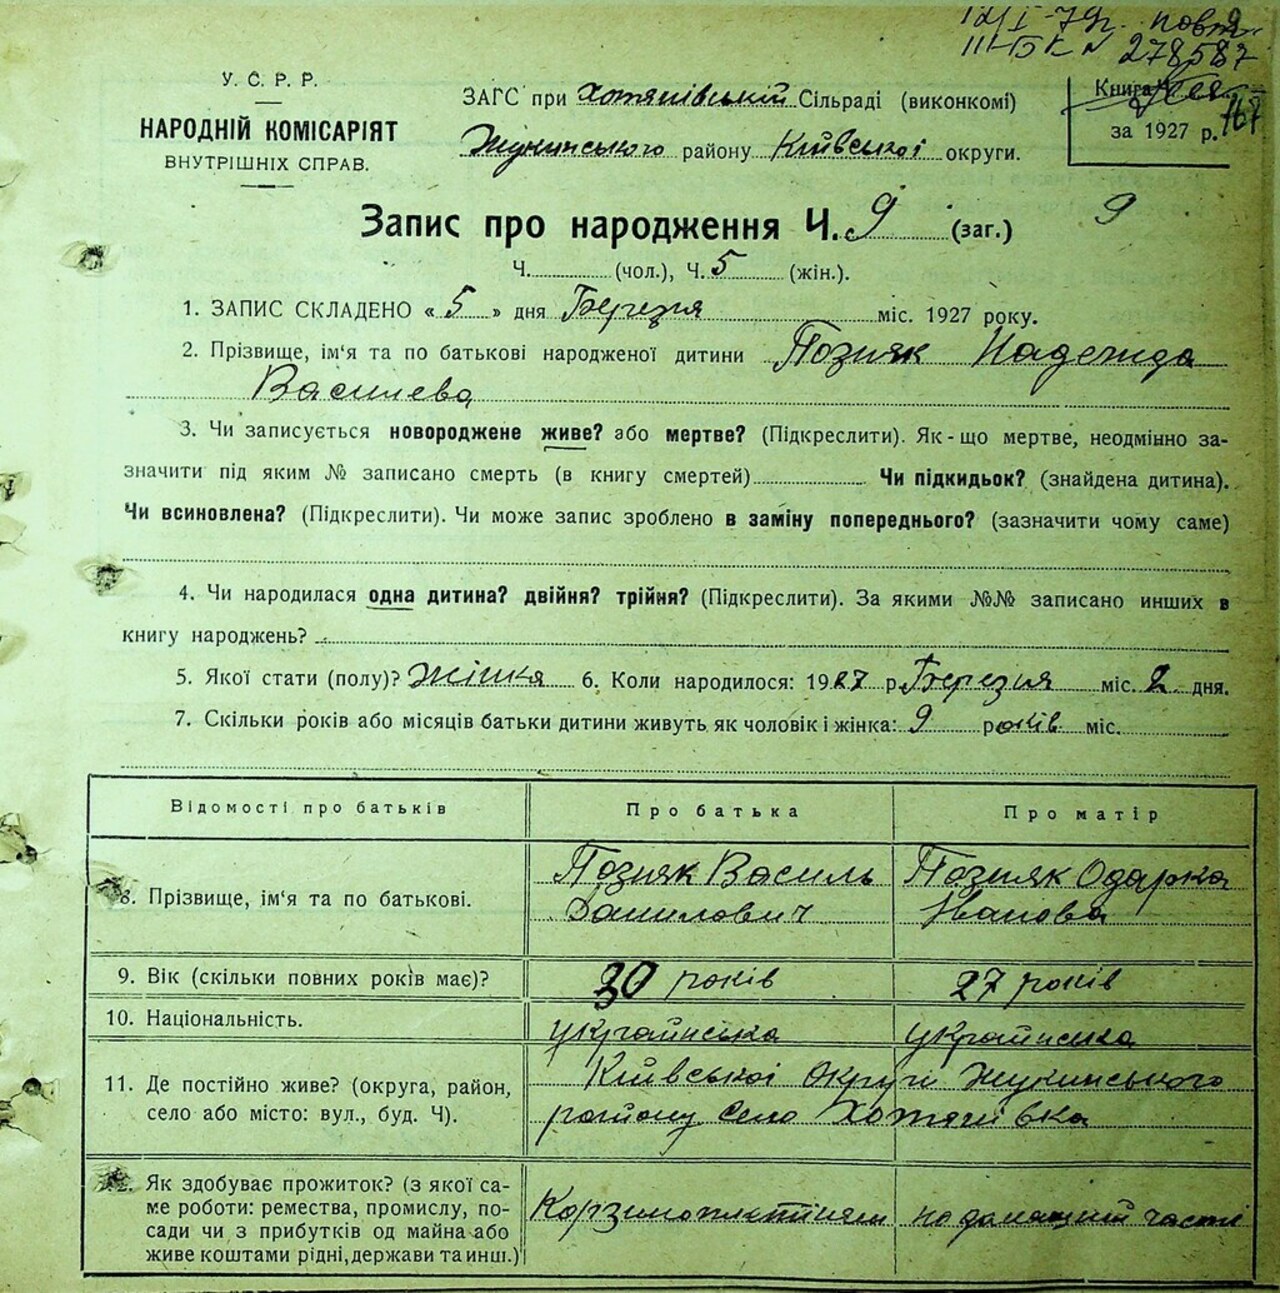 12/I-79р. повт.
III-БК № 278587
У. С. Р. Р.
НАРОДНІЙ КОМІСАРІЯТ
ВНУТРІШНІХ СПРАВ.
ЗАГС при Хотянівській Сільраді (виконкомі)
Жукинського району Київської округи.
Книга
за 1927 р. 167
Запис про народження Ч. 9 (заг.) 9
Ч. (чол.), Ч. 5 (жін.).
1. ЗАПИС СКЛАДЕНО « 5 » дня Березня міс. 1927 року.
2. Прізвище, ім'я та по батькові народженої дитини Позняк Надежда
Васильева
3. Чи записується новороджене живе? або мертве? (Підкреслити). Як-що мертве, неодмінно за-
значити під яким № записано смерть (в книгу смертей) Чи підкидьок? (знайдена дитина).
Чи всиновлена? (Підкреслити). Чи може запис зроблено в заміну попереднього? (зазначити чому саме)
4. Чи народилася одна дитина? двійня? трійня? (Підкреслити). За якими №№ записано инших в
книгу народжень?
5. Якої стати (полу)? Жінка 6. Коли народилося: 1927 р. Березня міс. 2 дня.
7. Скільки років або місяців батьки дитини живуть як чоловік і жінка: 9 років міс.
Відомості про батьків Про батька Про матір
8. Прізвище, ім'я та по батькові. Позняк Василь Данилович Позняк Одарка Иванова
9. Вік (скільки повних років має)? 30 років 27 років
10. Національність. українська українська
11. Де постійно живе? (округа, район, Київської Округи Жукинського
село або місто: вул., буд. Ч). району Село Хотянівка
12. Як здобуває прожиток? (з якої са-
ме роботи: ремества, промислу, по- Корзиноплетінням по домашній часті
сади чи з прибутків од майна або
живе коштами рідні, держави та инш.)